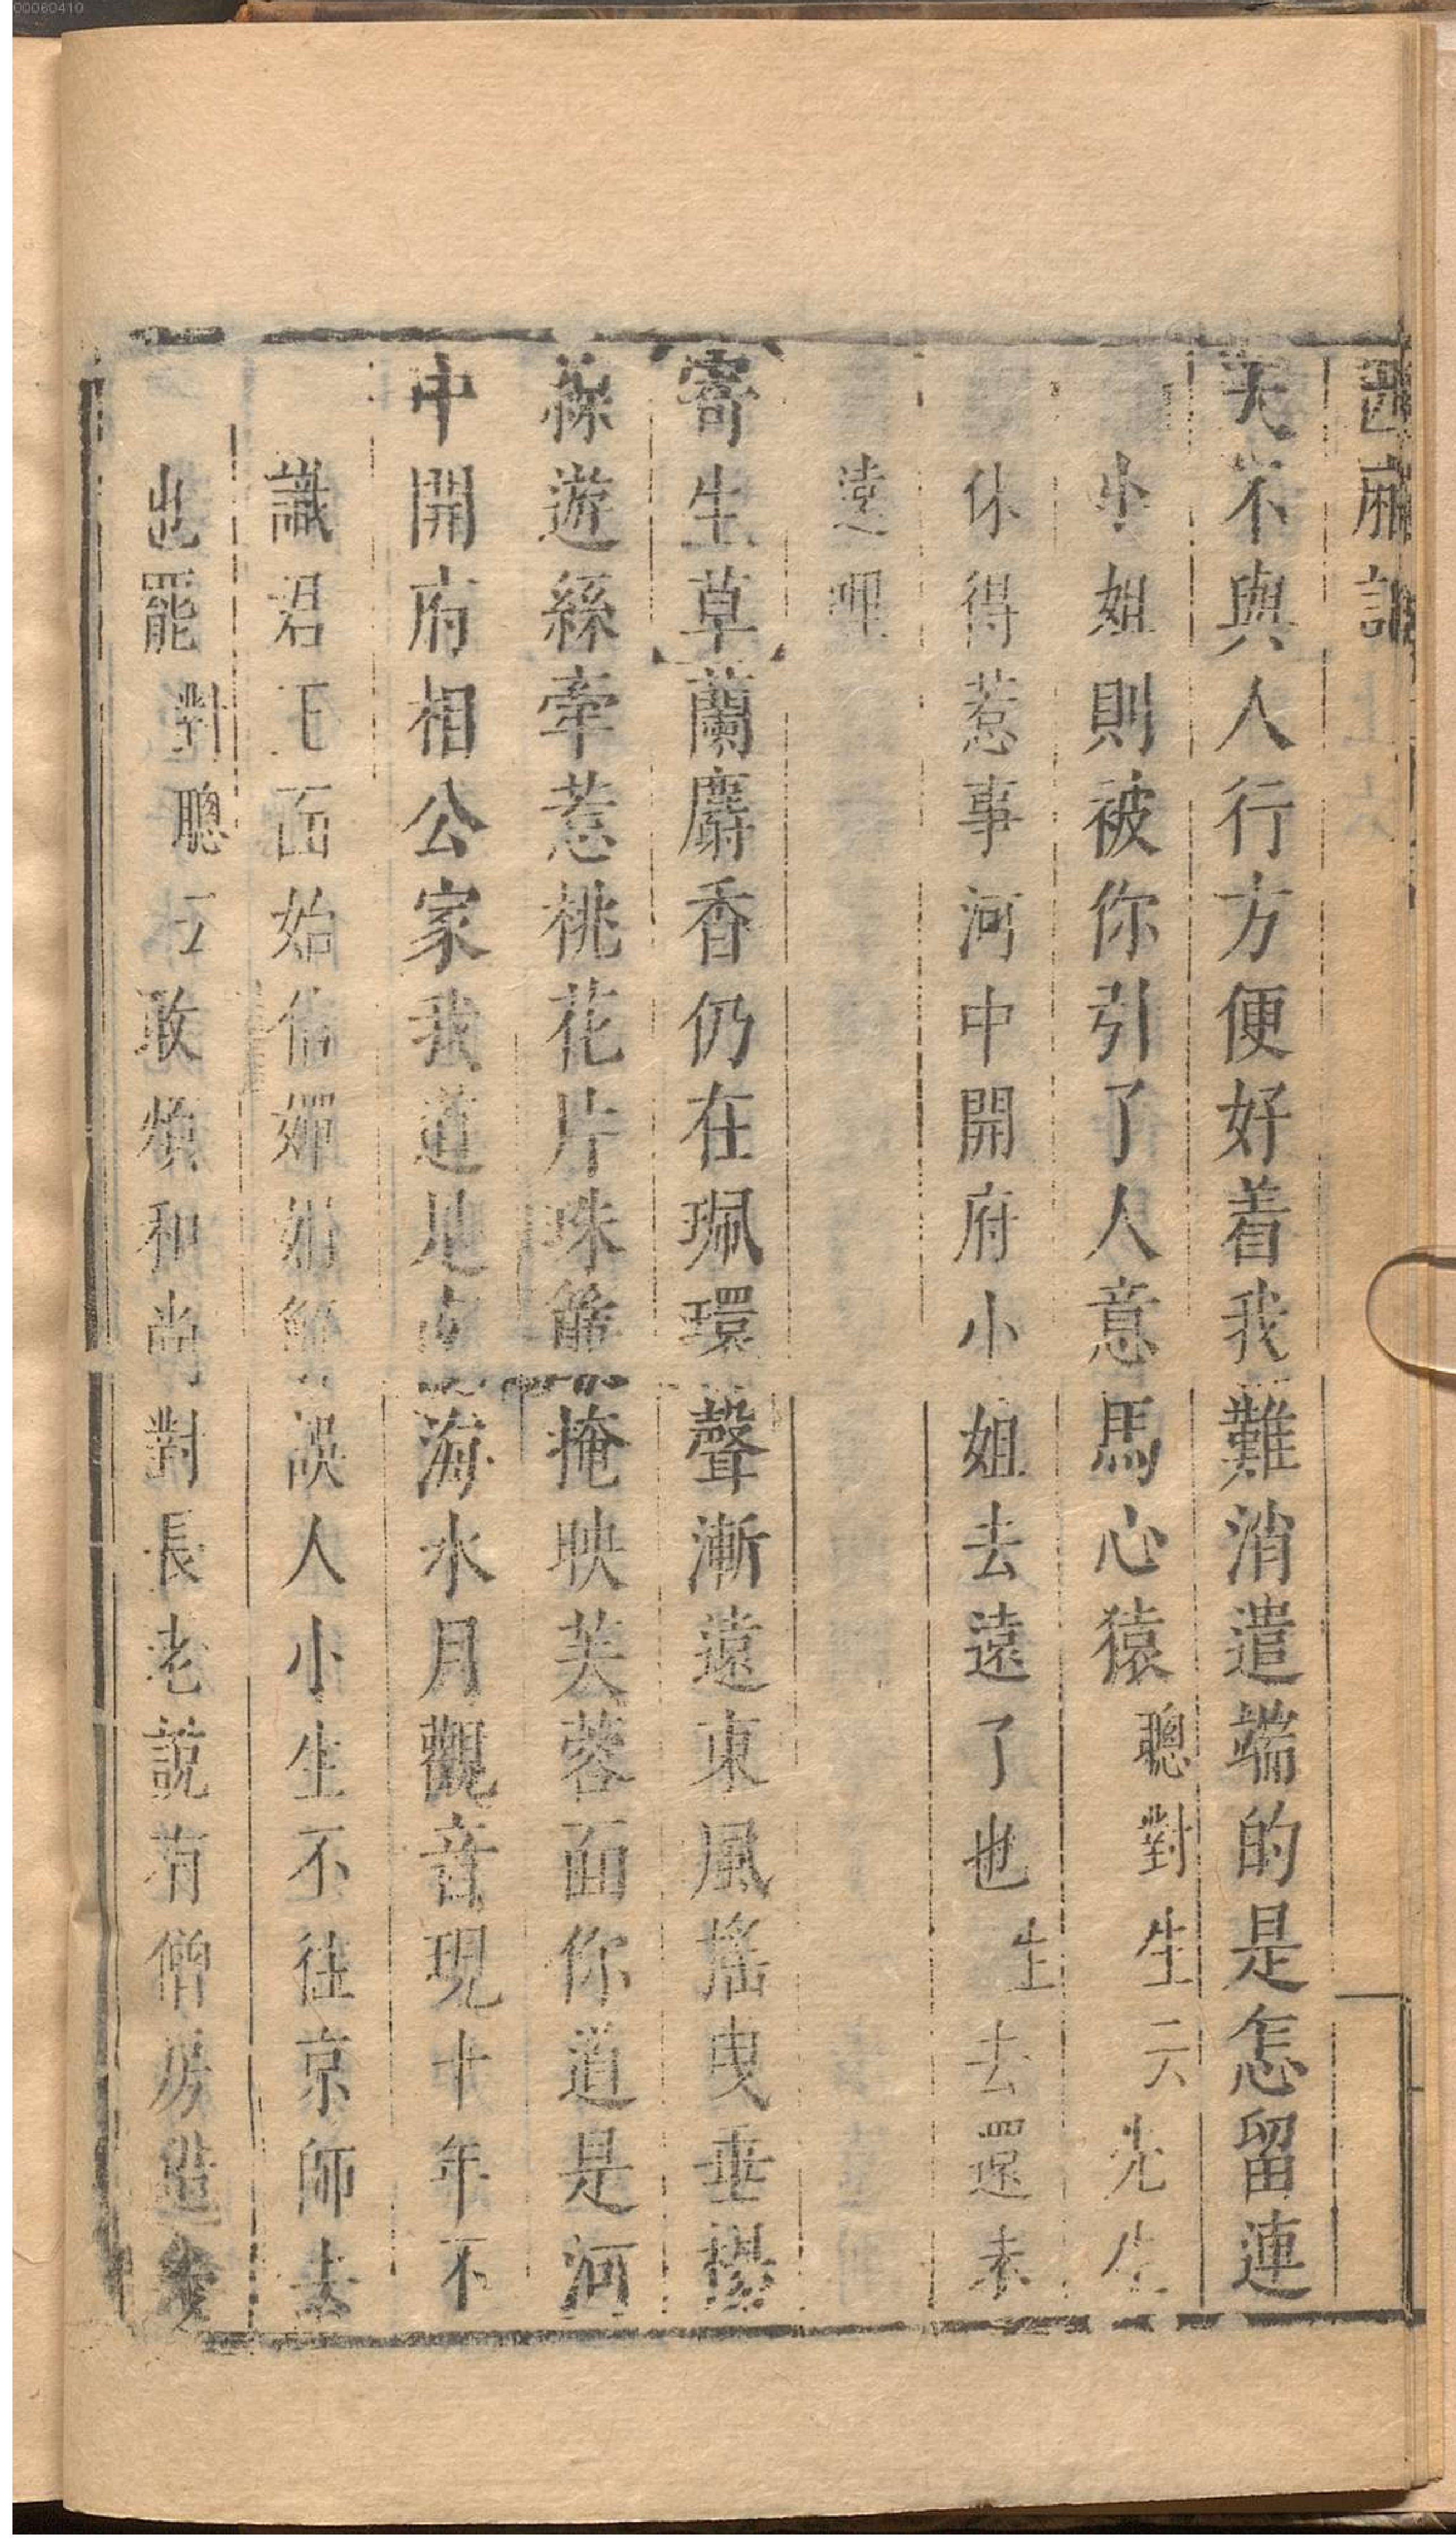 00060410
西廂記
天不與人行方便好着我難消遣端的是怎留連
小姐則被你引了人意馬心猿聰對生云先生
休得惹事河中開府小姐去遠了也生去還未
遠哩
寄生草蘭麝香仍在珮環聲漸遠東風搖曳垂楊
線遊絲牽惹桃花片珠簾掩映芙蓉面你道是河
中開府相公家我道是南海水月觀音現十年不
識君王面始信嬋娟解誤人小生不往京師去
也罷對聰云敢煩和尚對長老說有僧房